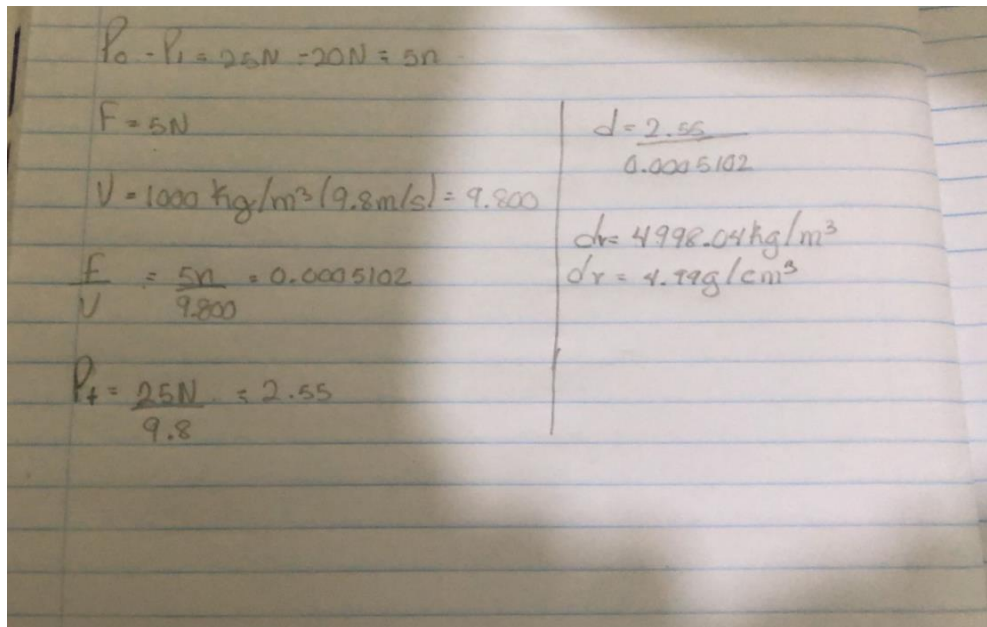 P₀ - P₁ = 25N - 20N = 5n
F = 5N
V = 1000 kg/m³ (9.8m/s) = 9.800
F/V = 5n/9.800 = 0.0005102
P₊ = 25N/9.8 = 2.55
d = 2.55/0.0005102
dr = 4998.04kg/m³
dr = 4.99g/cm³